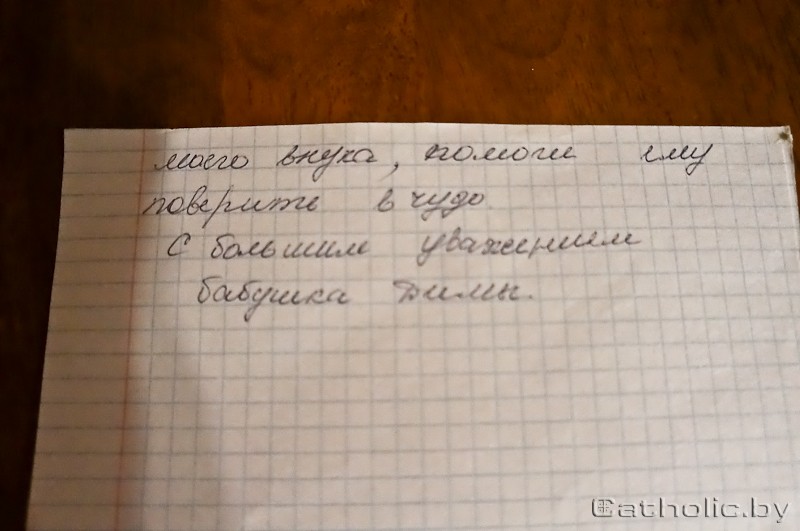 моего внука, помоги ему
поверить в чудо.
С большим уважением
бабушка Димы.
Catholic.by